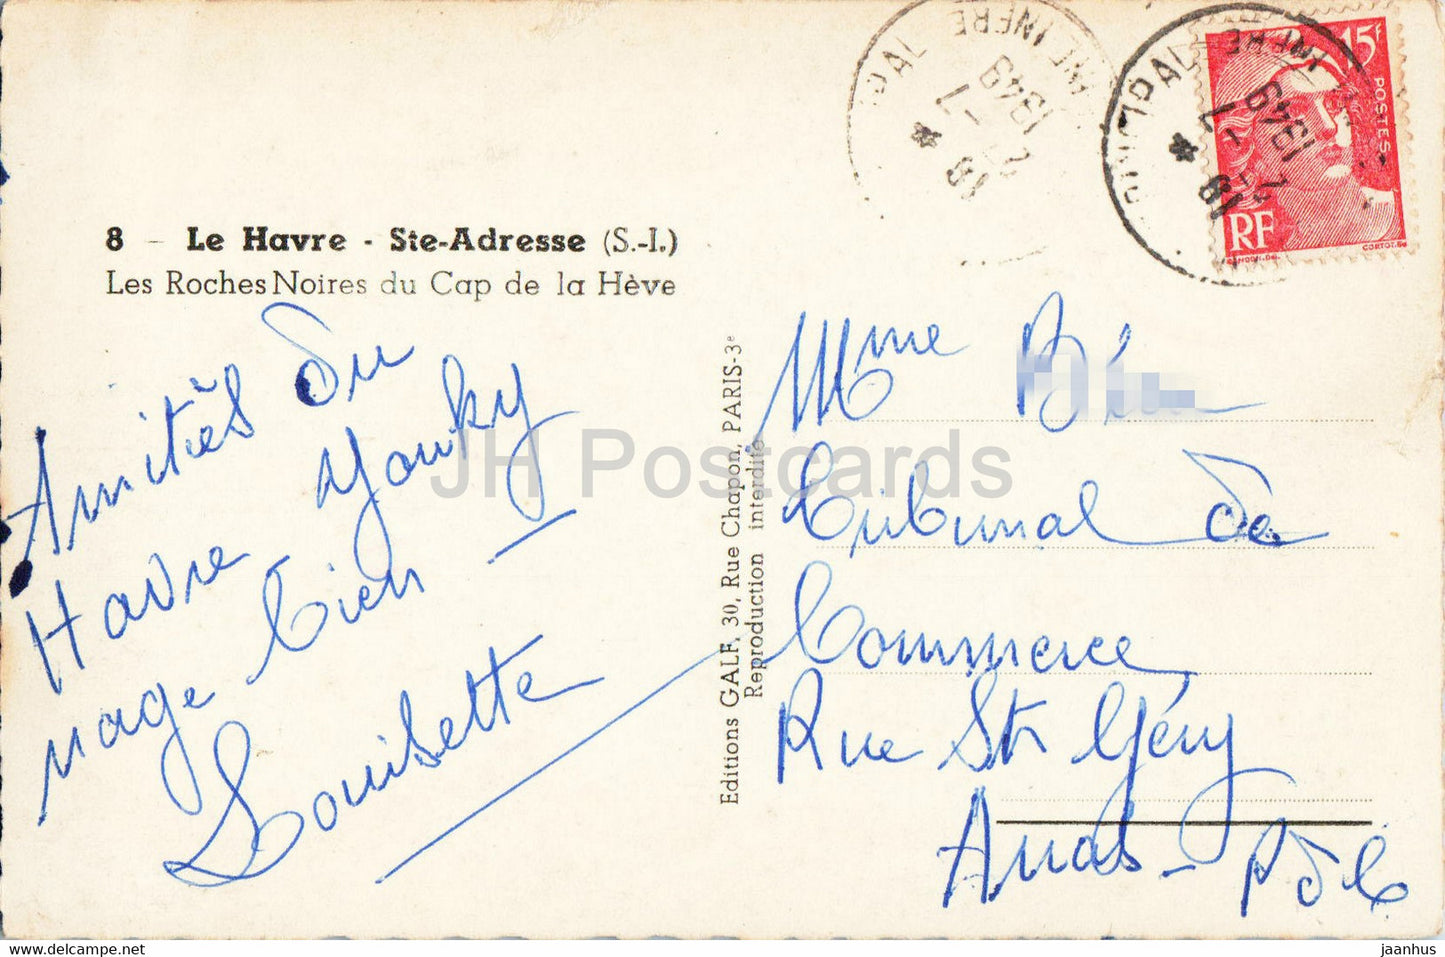 8 - Le Havre - Ste-Adresse (S.-I.)
Les Roches Noires du Cap de la Hève
Amitiés du
Havre Youky
nage bien
Louisette
Editions GALF, 30, Rue Chapon, PARIS-3e
Reproduction interdite
15F
POSTES
RF
19
1949
Mme
Tribunal de
Commerce
Rue St Géry
Arras - PdC
JH Postcards
www.delcampe.net
jaanhus